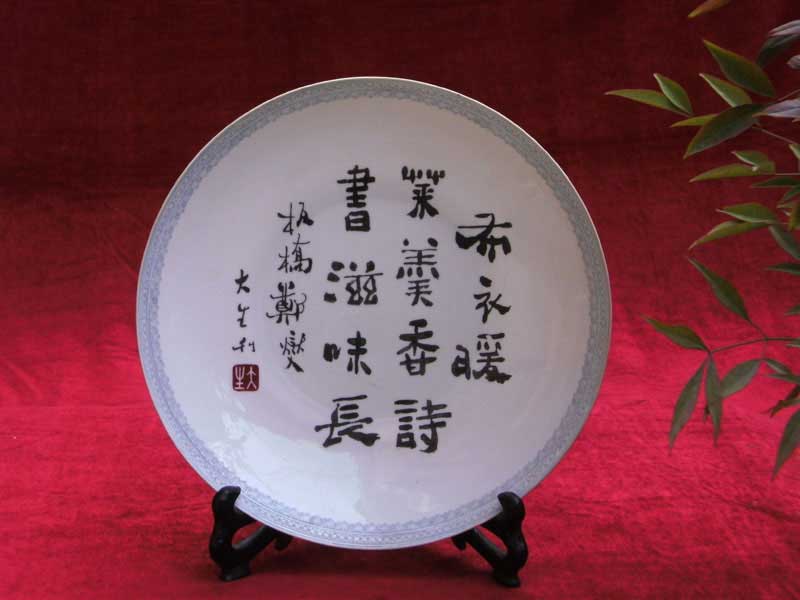 布衣暖
菜羹香詩
書滋味長
板橋鄭燮
大生刻
大生